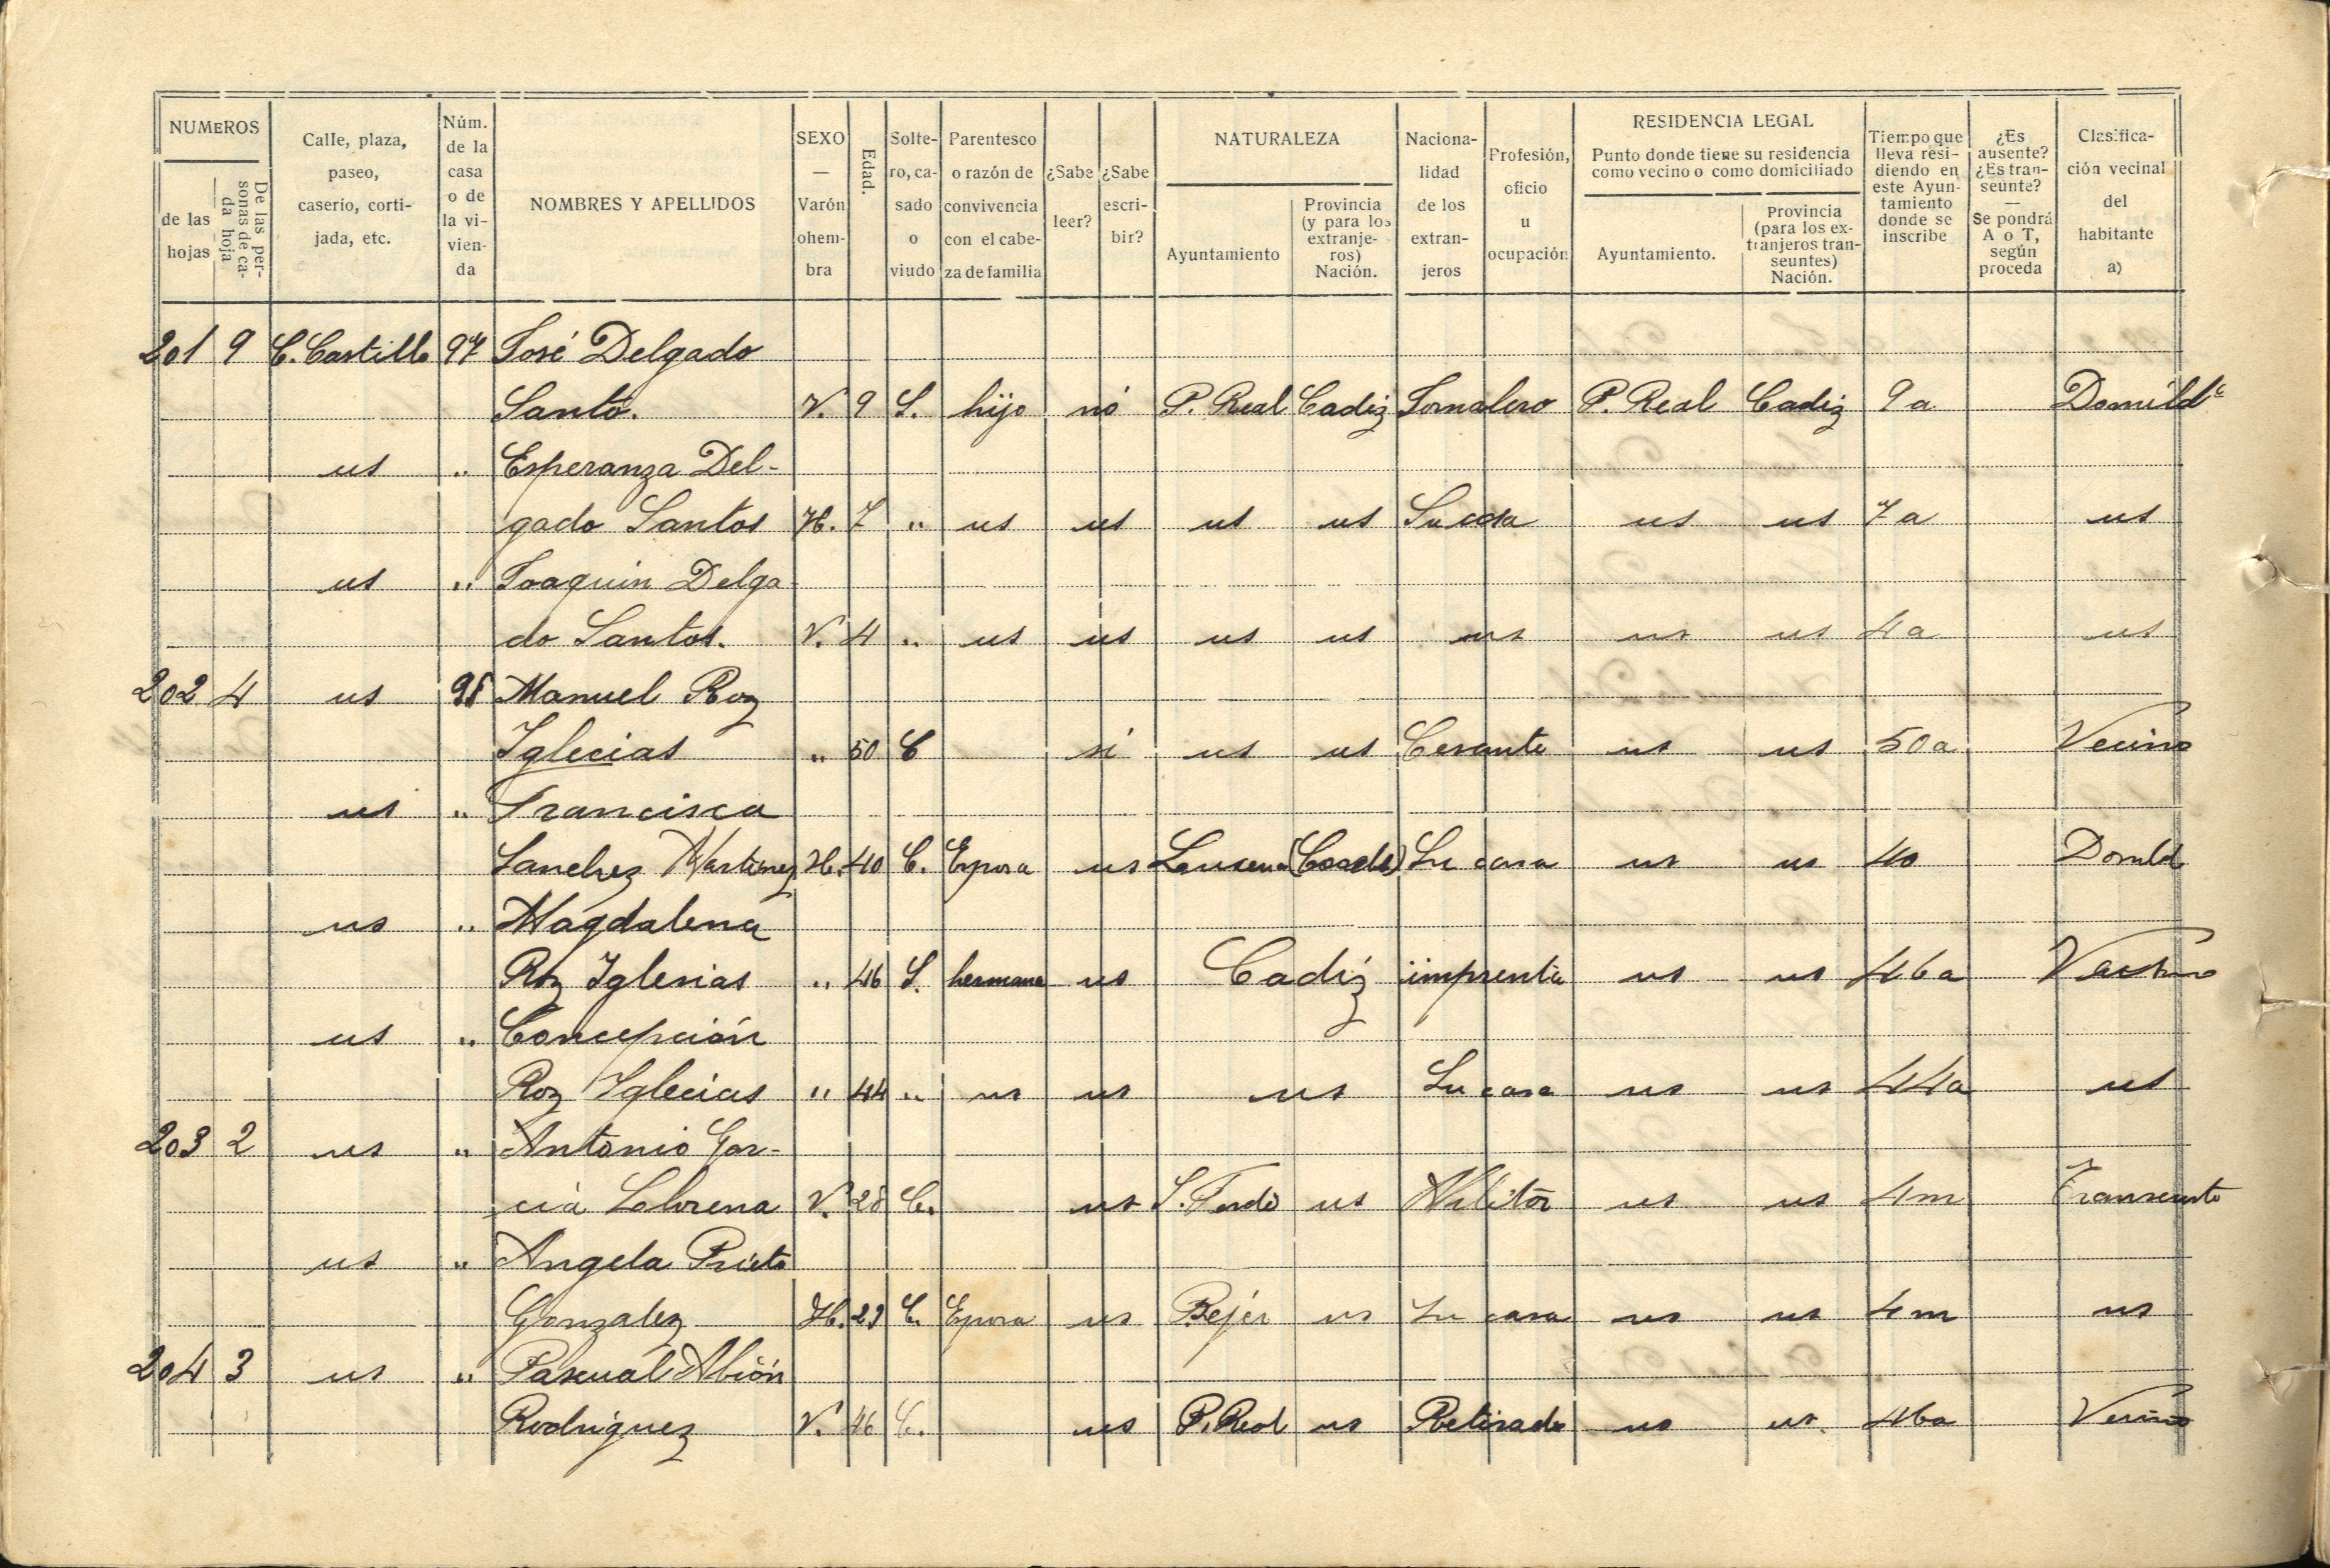 NUMEROS
de las hojas
De las personas de cada hoja
Calle, plaza, paseo, caserio, cortijada, etc.
Núm. de la casa o de la vivienda
NOMBRES Y APELLIDOS
SEXO — Varón ohembra
Edad.
Soltero, casado o viudo
Parentesco o razón de convivencia con el cabeza de familia
¿Sabe leer?
¿Sabe escribir?
NATURALEZA
Ayuntamiento
Provincia (y para los extranjeros) Nación.
Nacionalidad de los extranjeros
Profesión, oficio u ocupación
RESIDENCIA LEGAL
Punto donde tiene su residencia como vecino o como domiciliado
Ayuntamiento.
Provincia (para los extranjeros transeuntes) Nación.
Tiempo que lleva residiendo en este Ayuntamiento donde se inscribe
¿Es ausente? ¿Es transeúnte? — Se pondrá A o T, según proceda
Clasificación vecinal del habitante a)
201 9 C. Castillo 97 José Delgado
Santo. V. 9 S. hijo nó P. Real Cadiz Jornalero P. Real Cadiz 9 a Domildº
us " Esperanza Del-
gado Santos H. 7 " us us us us Su casa us us 7 a us
us " Joaquin Delga
do Santos. V. 4 " us us us us us us us 4 a us
202 4 us 98 Manuel Roz
Iglecias " 50 C sí us us Cesante us us 50 a Vecino
us " Francisca
Sanchez Martinez H. 40 C. Espora us Lucena (Corde) Su casa us us 40 Domild
us " Magdalena
Roz Iglesias " 46 S. hermana us Cadiz imprenta us us 46a Vecino
us " Concepción
Roz Iglecias " 44 " us us us Su casa us us 44a us
203 2 us " Antonio Gar-
cia Llorena V. 28 C. us S. Ferdo us Militar us us 4m Transeunte
us " Angela Prieto
Gonzalez H. 29 C. Epora us Bejer us Su casa us us 4m us
204 3 us " Pascual Abión
Rodriguez V. 46 C. us P. Real us Retirado us us 46a Vecino